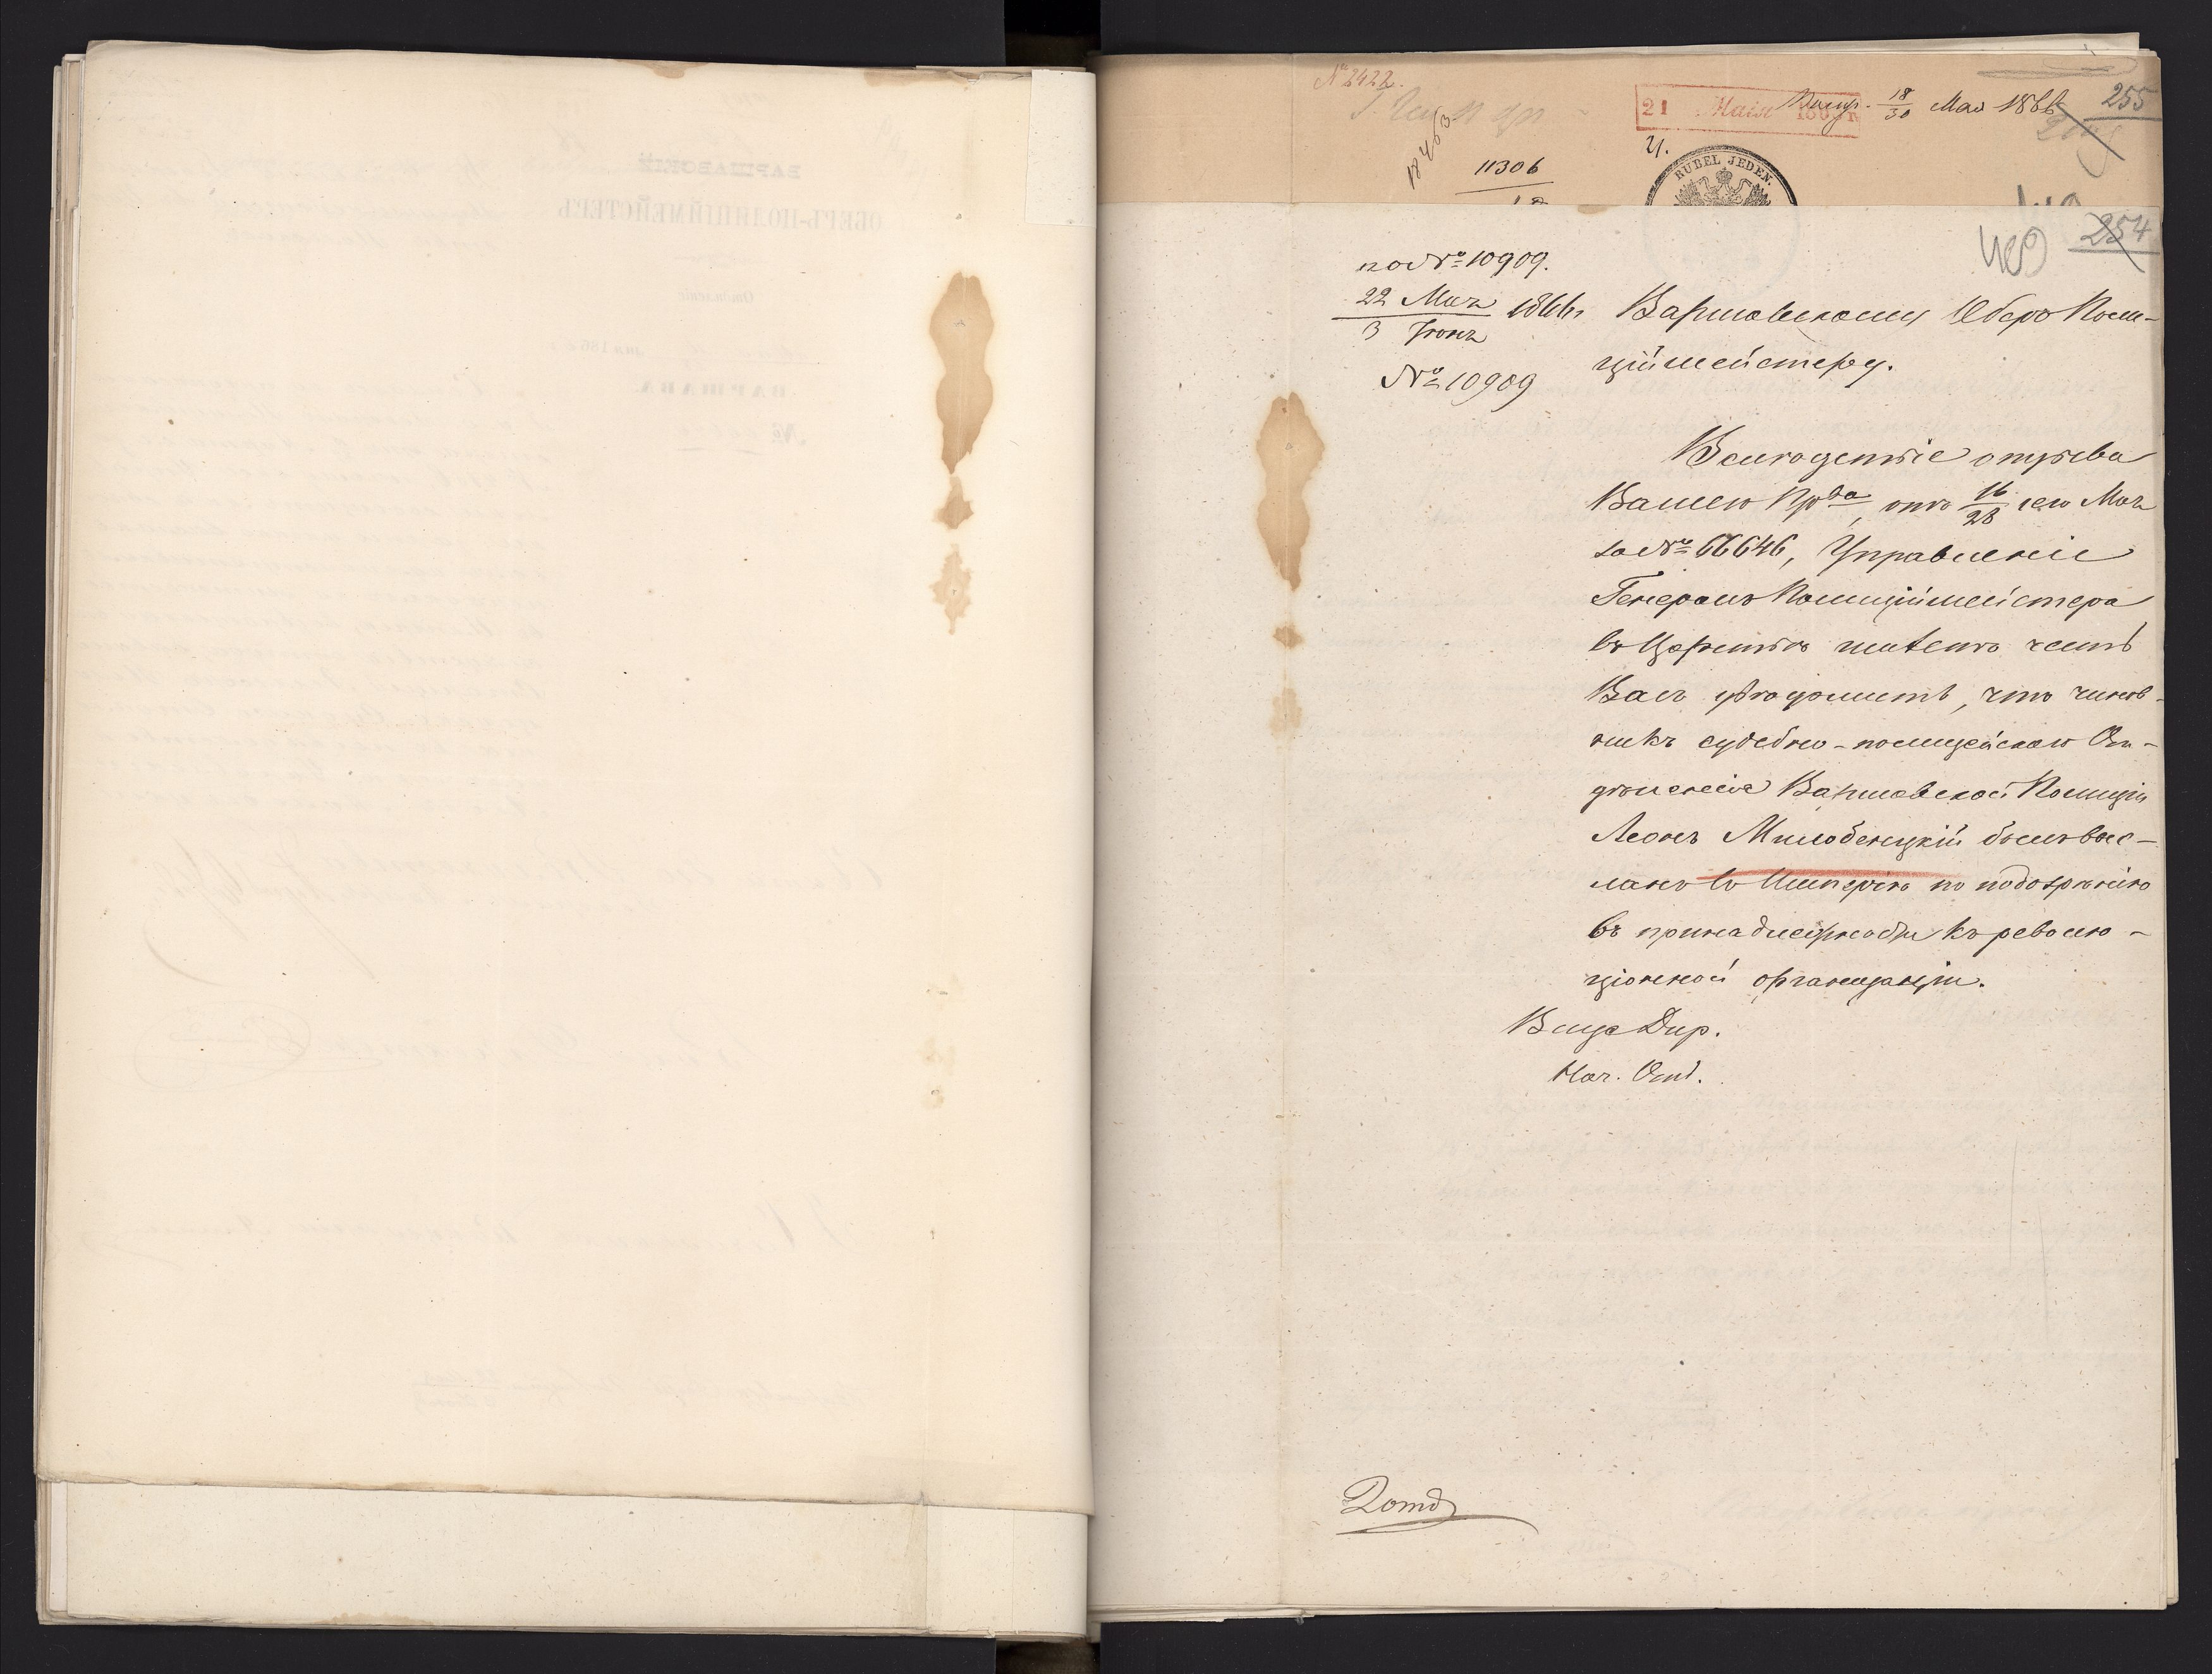 № 2422.
21 Маія
18/30 Мая 1866
255
18463
11306
RUBEL JEDEN.
254
по № 10909.
22 Мая
3 Іюня
1866 г
№ 10909
Варшавскому Оберъ Поли-
ційместеру.
Вслѣдствіе отзыва
Вашего Прва, отъ 16/28 сего Мая
за № 66646, Управленіе
Генералъ Полиціймейстера
въ Царствѣ имѣетъ честь
Васъ увѣдомить, что чинов-
никъ судебно-полицейскаго От-
дѣленія Варшавской Полиціи
Леонъ Милобенцкій былъ выс-
ланъ въ Имперію по подозрѣнію
въ принадлежности къ револю-
ціонной организаціи.
Вице Дир.
Нач. Отд.